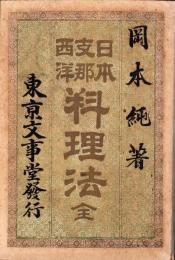 岡本純著
日本
支那
西洋
料理法 全
東京文事堂發行